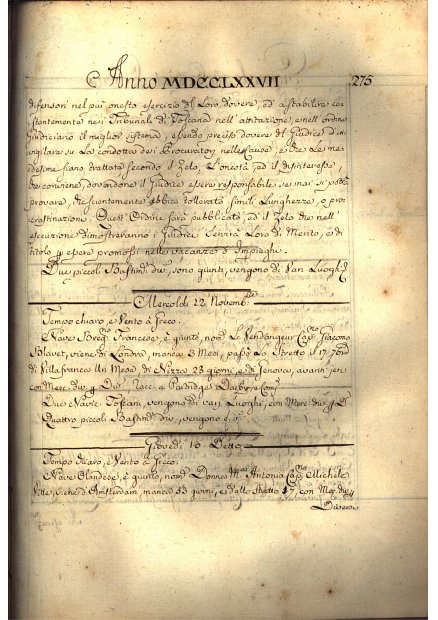 Anno MDCCLXXVII 275
difensori nel più onesto esercizio del Loro dovere, ed a stabilire co-
stantemente nei Tribunali di Toscana nell' attitazione, e nell' ordine
Giudiciario il miglior sistema, essendo preciso dovere del Giudice d' in-
vigilare su La condotta dei Procuratori nelle Cause, e che Le me-
desime siano trattate secondo il Zelo, L'onestà, ed il disinteresse
che conviene, dovendone il Giudice essere responsabile se mai si potesse
provare, che scientemente abbia tollerato simili Lunghezze, o pro-
crastinazione. Quest' Ordine sarà pubblicato, ed il Zelo che nell'
esecuzione dimostreranno i Giudici servirà Loro di Merito, e di
titolo p essere promossi nelle vacanze d' Impieghi.
Due piccoli Bastim.ti div.i sono giunti, vengono di Van Luoghi
Mercoldì 12 Novemb.re
Tempo chiaro, e Vento à Greco.
Nave Francese, è giunto, nom.a Le Vendangeur Cap.no Giacomo
Blavet, viene di Londra, manca 3 Mesi, passò Lo Stretto il 17,
di Villafranca Un Mese, di Nizza 23 giorni, e di Genova,
con Merc. div. p Div.i Racc. a Partridge
Due Navic. Toscani, vengono di van. Luoghi, con Merc. div. p
Quattro piccoli Bastim.ti div.i, vengono
Giovedì 13 Detto
Tempo chiaro, e Vento à Greco.
Nave Olandese, è giunto, nom.a Donna M.a Antonia Cap.no Michele
viene d' Amsterdam, manca 53 giorni, e dallo Stretto 17, con Mer. div. p
Diversi